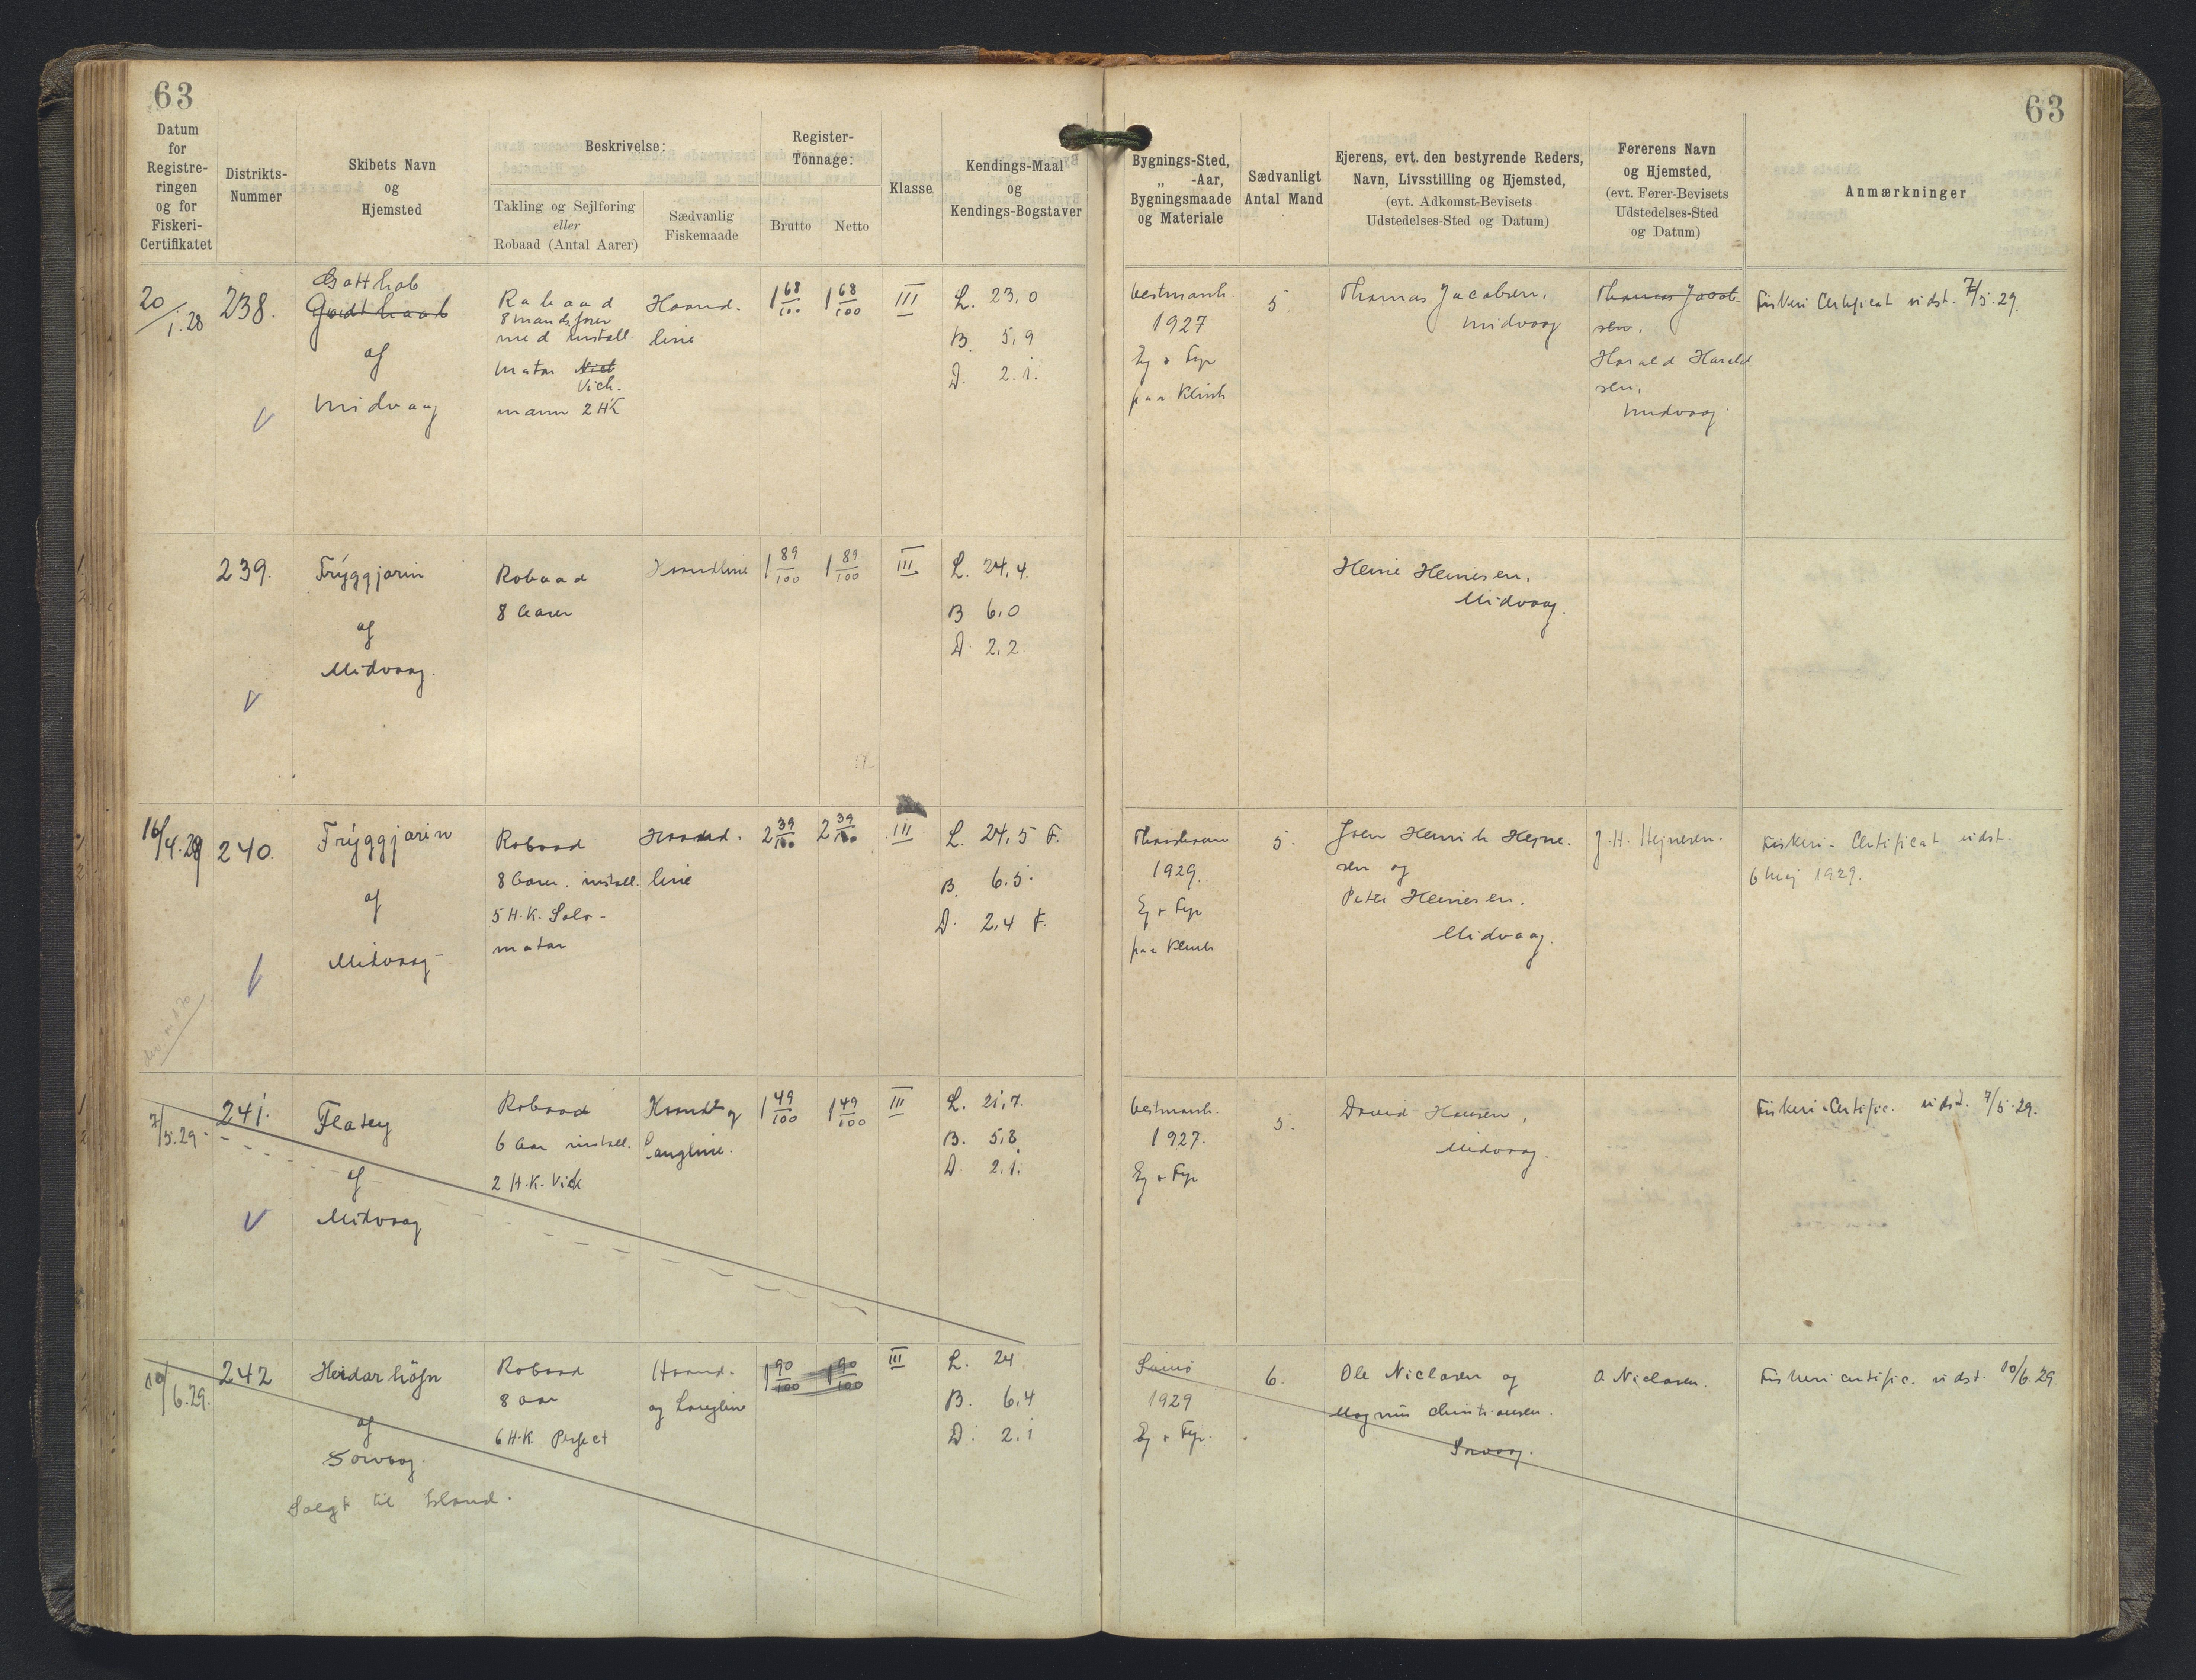 63
63
Datum
for
Registre-
ringen
og for
Fiskeri-
Certifikatet
Distrikts-
Nummer
Skibets Navn
og
Hjemsted
Beskrivelse:
Takling og Sejlføring
eller
Robaad (Antal Aarer)
Sædvanlig
Fiskemaade
Register-
Tonnage:
Brutto
Netto
Klasse
Kendings-Maal
og
Kendings-Bogstaver
Bygnings-Sted,
„ -Aar,
Bygningsmaade
og Materiale
Sædvanligt
Antal Mand
Ejerens, evt. den bestyrende Reders,
Navn, Livsstilling og Hjemsted,
(evt. Adkomst-Bevisets
Udstedelses-Sted og Datum)
Førerens Navn
og Hjemsted,
(evt. Fører-Bevisets
Udstedelses-Sted
og Datum)
Anmærkninger
20/1.28
238.
Gotthab
Godthaab
af
Midvaag
Robaad
8 mandsfarer
med install.
motor
Vich-
mann 2 HK
Haand-
line
1 68/100
1 68/100
III
L. 23,0
B. 5,9
D. 2.1.
Vestmanh.
1927
Eg + Fyr
paa Klink
5.
Thomas Jacobsen,
Midvaag
Thomas Jacob-
sen,
Harald Harald-
sen,
Midvaag
Fiskeri Certificat udst. 7/5.29.
239.
Frýggjarin
af
Midvaag.
Robaad
8 Aarer
Haandline
1 89/100
1 89/100
III
L. 24,4.
B 6,0
D. 2,2.
Heine Heinesen,
Midvaag.
16/4.29
240.
Frýggjarin
af
Midvaag
Robaad
8 Aarer. install.
5 H.K. Solo-
motor
Haand-
line
2 39/100
2 39/100
III
L. 24,5 F.
B. 6.5.
D. 2,4 F.
Thorshavn
1929.
Eg + Fyr
paa Klink
5.
Joen Henrik Hejne-
sen og
Peter Heinesen.
Midvaag.
J.H. Hejnesen.
Fiskeri-Certificat udst.
6 Maj 1929.
7/5.29.
241.
Flatey
af
Midvaag
Robaad
6 Aar install.
2 H.K. Vick
Haand og
Langline.
1 49/100
1 49/100
III
L. 21,7.
B. 5,8
D. 2.1.
Vestmanh.
1927.
Eg + Fyr
5.
David Hansen,
Midvaag.
Fiskeri-Certific. udst. 7/5.29.
10/6.29.
242
Heidarhöfn
af
Sorvaag.
Solgt til Island.
Robaad
8 Aar
6 H.K. Perfect
Haand-
og Langline
1 90/100
1 90/100
III
L. 24
B. 6,4
D. 2.1
1929
Eg + Fyr.
6.
Ole Niclasen og
Magnus Christiansen.
Sorvaag.
O Niclasen.
Fiskericertific. udst. 10/6.29